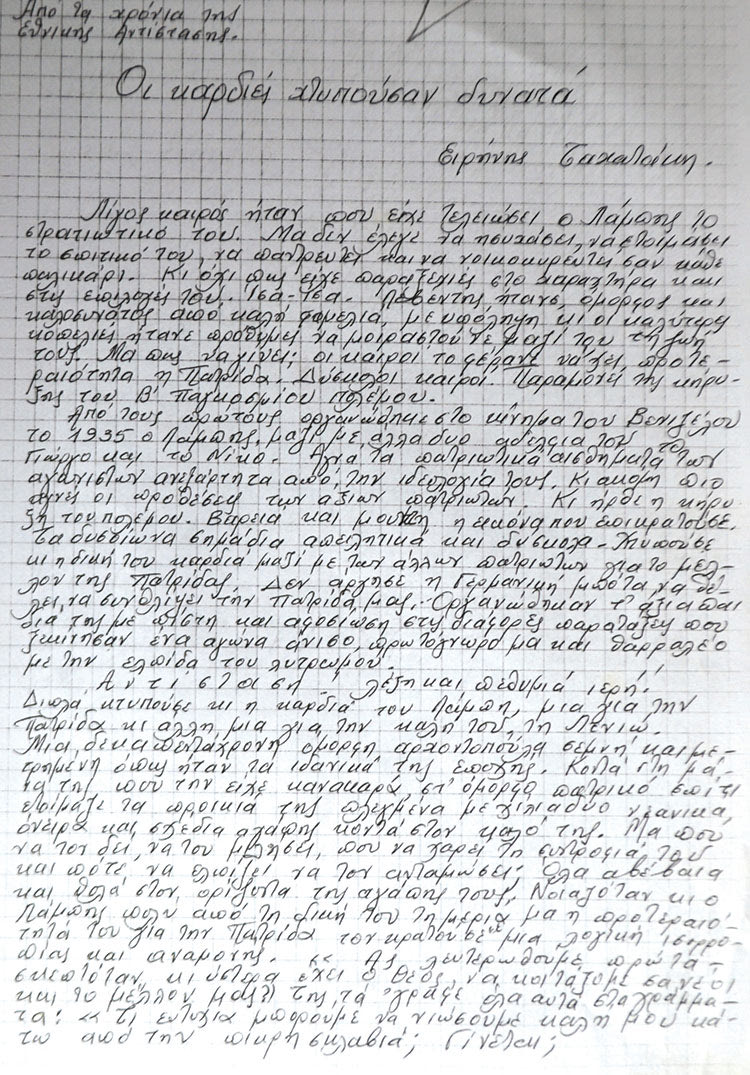 Από τα χρόνια της
Εθνικής Αντίστασης.
Οι καρδιές χτυπούσαν δυνατά
Ειρήνης Ταχατάκη.
Λίγος καιρός ήταν που είχε τελειώσει ο Λάμπης το
στρατιωτικό του. Μα δεν έλεγε να ησυχάσει, να ετοιμάσει
το σπιτικό του, να παντρευτεί και να νοικοκυρευτεί σαν κάθε
παλικάρι. Κι όχι πως είχε παραξενιές στο χαραχτήρα και
στις επιλογές του. Ίσα-ίσα. Λεβέντης ήτανε, όμορφος και
καλοσυνάτος από καλή φαμελιά, με υπόληψη κι οι καλύτερες
κοπελιές ήτανε πρόθυμες να μοιραστούνε μαζί του τη ζωή
τους. Μα πως να γίνει; οι καιροί το φέρανε να έχει προτε-
ραιότητα η Πατρίδα. Δύσκολοι καιροί. Παραμονές της κήρυ-
ξης του Β' Παγκοσμίου πολέμου.
Από τους πρώτους οργανώθηκε στο κίνημα του Βενιζέλου
το 1935 ο Λάμπης, μαζί με άλλα δυο αδέλφια του το
Γιώργο και το Νίκο. Αγνά τα πατριωτικά αισθήματα των
αγωνιστών ανεξάρτητα από την ιδεολογία τους. Κι ακόμη πιο
αγνές οι προθέσεις των άξιων πατριωτών. Κι ήρθε η κήρυ-
ξη του πολέμου. Βαρειά και μουντή η εικόνα που επικρατούσε.
Τα δυσοίωνα σημάδια απειλητικά και δύσκολα. Χτυπούσε
κι η δική του καρδιά μαζί με των άλλων πατριωτών για το μέλ-
λον της Πατρίδας. Δεν άργησε η Γερμανική μπότα, να θέ-
λει, να συνθλίψει την Πατρίδα μας. Οργανώθηκαν τ' άξια παι-
διά της με πίστη και αφοσίωση στις διάφορες παρατάξεις που
ξεκίνησαν ένα αγώνα άνισο, πρωτόγνωρο μα και θαρραλέο
με την ελπίδα του λυτρωμού.
Αντίσταση! λέξη και πεθυμιά ιερή!
Διπλά κτυπούσε κι η καρδιά του Λάμπη, μια για την
Πατρίδα κι άλλη μια για την καλή του, τη Λενιώ.
Μια δεκαπενταχρονη όμορφη αρχοντοπούλα σεμνή και με-
τρημένη όπως ήταν τα ιδανικά της εποχής. Κοντά στη μά-
να της, που την είχε κανακαρά, στ' όμορφο πατρικό σπίτι
ετοίμαζε τα προικιά της πλεγμένα με χίλια δυο νεανικά,
όνειρα και σχέδια αγάπης κοντά στον καλό της. Μα που
να τον δει, να του μιλήσει, που να χαρεί τη συντροφιά του
και πότε να ελπίζει να τον ανταμώσει; Όλα αβέβαια
και θολά στον ορίζοντα της αγάπης τους. Νοιαζόταν κι ο
Λάμπης πολύ από τη δική του τη μεριά μα η προτεραιό-
τητά του για την Πατρίδα τον κρατούσε με μια λογική ισορρο-
πίας και αναμονής. «Ας λευτερωθούμε πρώτα -
σκεπτόταν, κι ύστερα έχει ο Θεός, να κοιτάξομε σα νέοι
και το μέλλον μας». Της τά 'γραφε όλα αυτά στα γράμμα-
τα: «τι ευτυχία μπορούμε να νιώσουμε καλή μου κά-
τω από την πικρή σκλαβιά; Γίνεται;